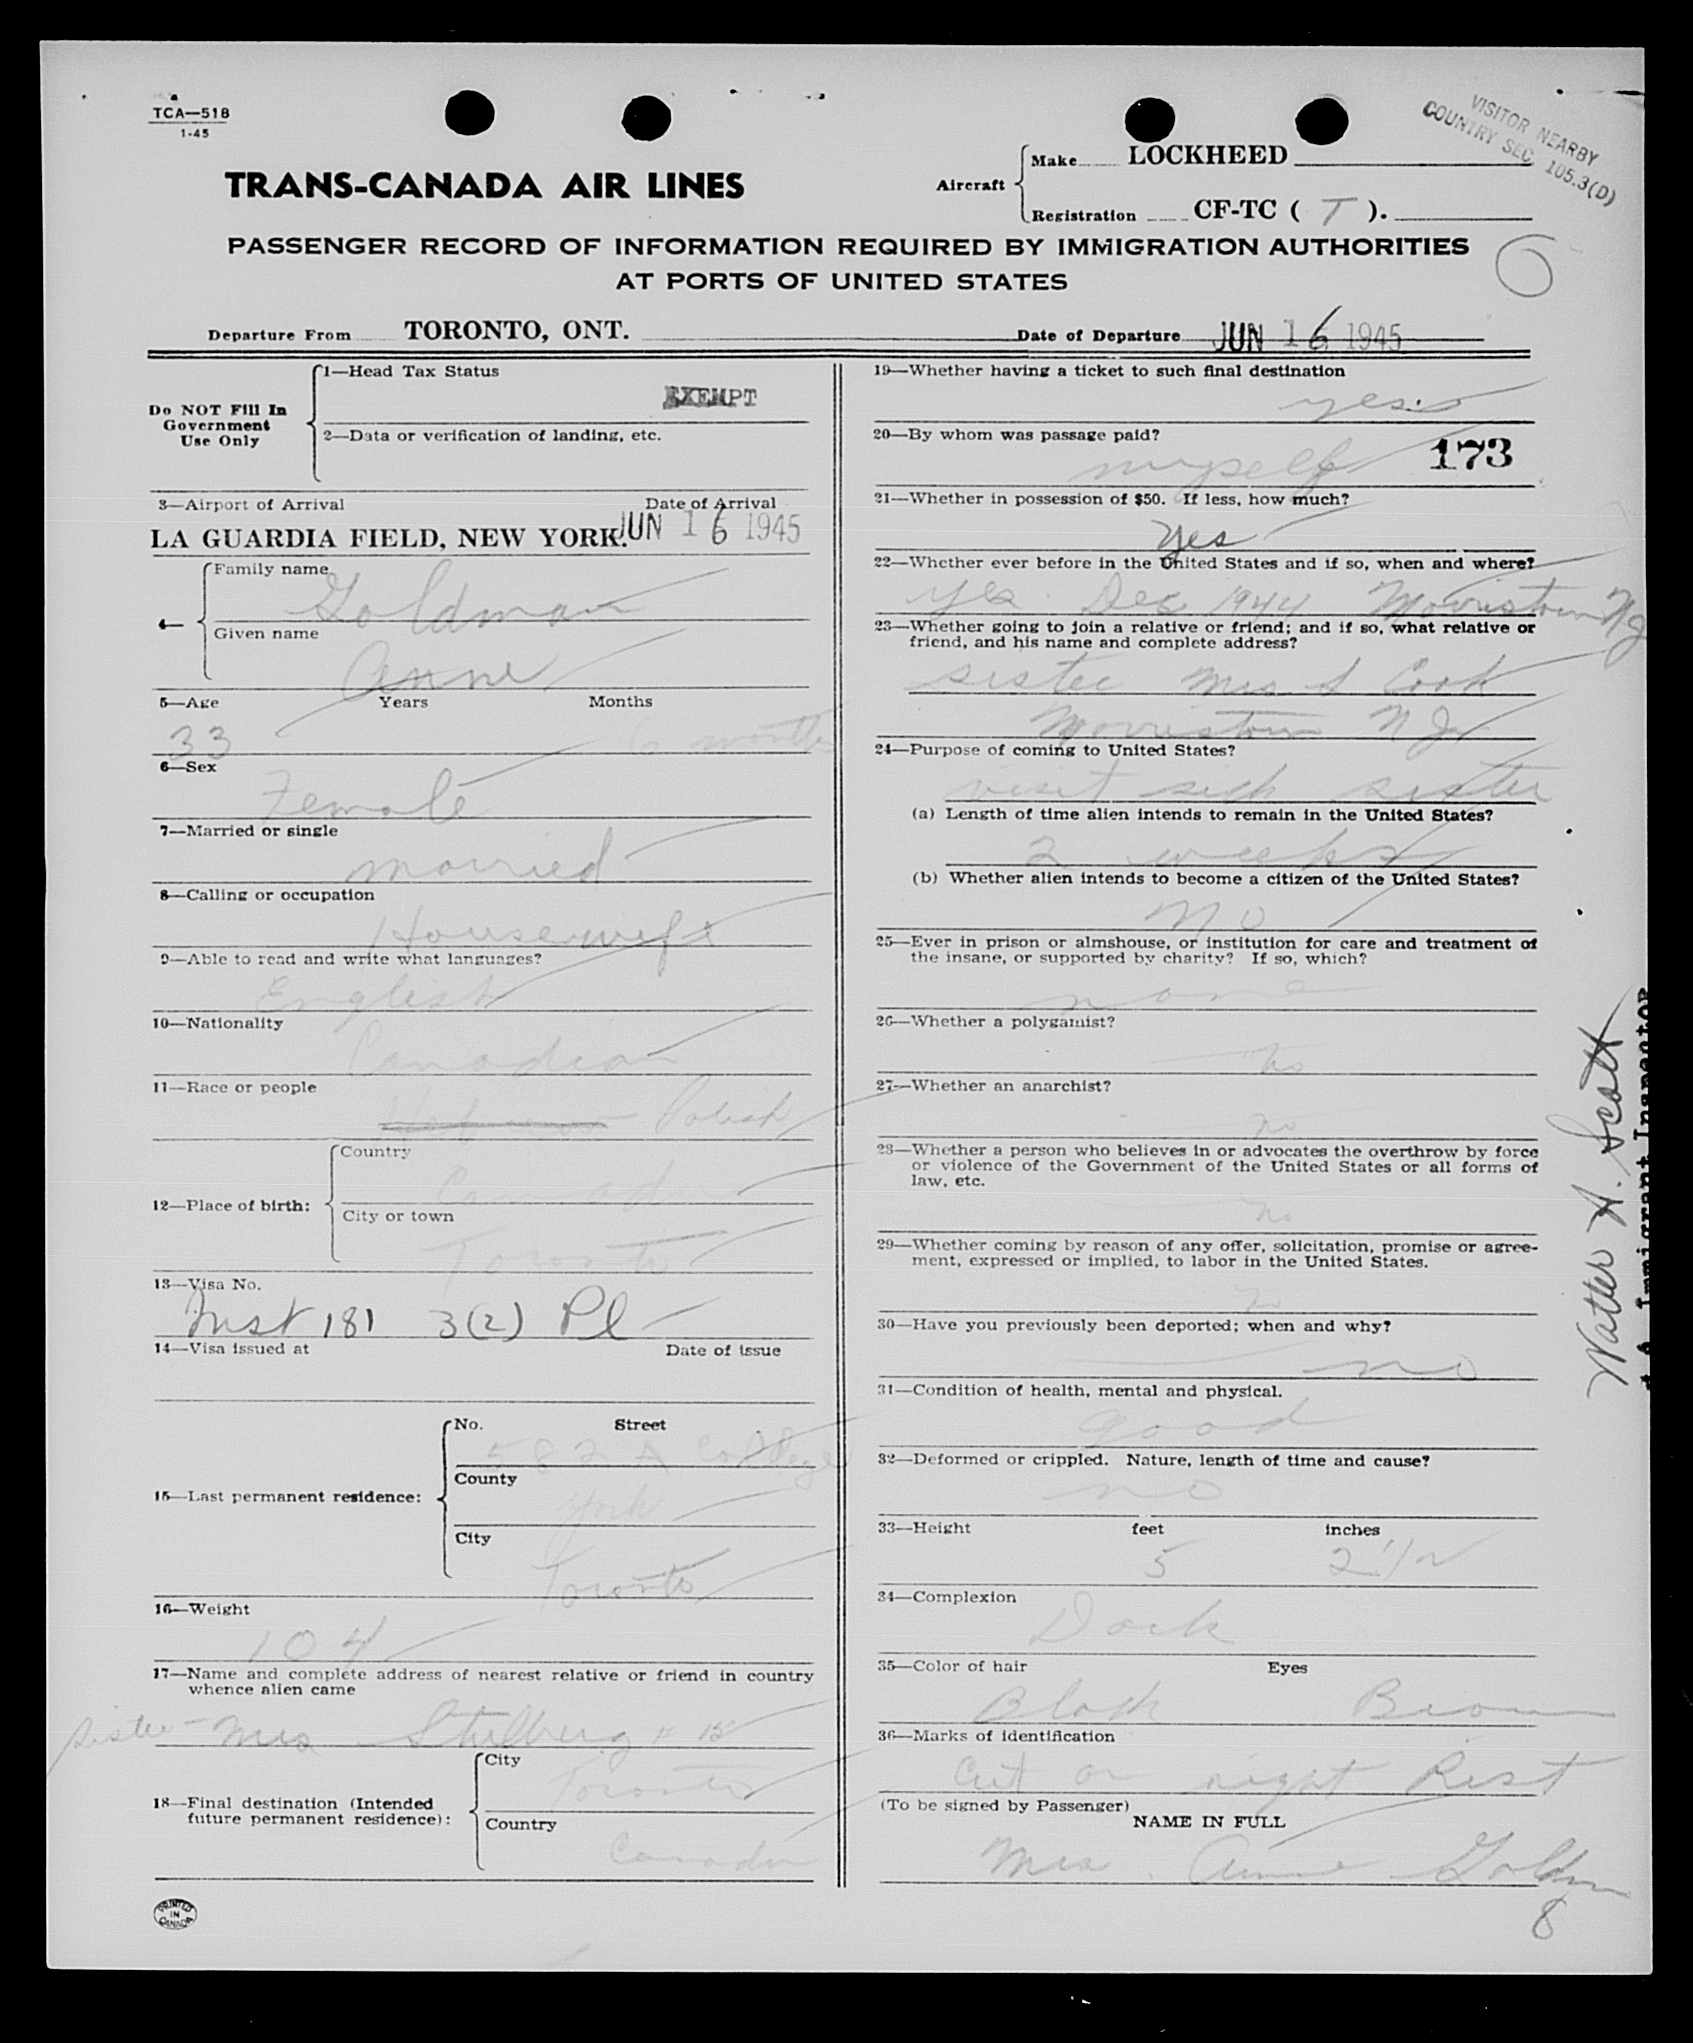 TCA—518
1-45
VISITOR NEARBY
COUNTRY SEC. 105.3(D)
TRANS-CANADA AIR LINES
Aircraft
Make LOCKHEED
Registration CF-TC ( T ).
PASSENGER RECORD OF INFORMATION REQUIRED BY IMMIGRATION AUTHORITIES
AT PORTS OF UNITED STATES
6
Departure From TORONTO, ONT. Date of Departure JUN 16 1945
Do NOT Fill In
Government
Use Only
1—Head Tax Status
EXEMPT
2—Data or verification of landing, etc.
3—Airport of Arrival Date of Arrival
LA GUARDIA FIELD, NEW YORK. JUN 16 1945
4—
Family name
Goldman
Given name
Anne
5—Age Years Months
33 6 months
6—Sex
Female
7—Married or single
married
8—Calling or occupation
Housewife
9—Able to read and write what languages?
English
10—Nationality
Canadian
11—Race or people
Polish
12—Place of birth:
Country
Canada
City or town
Toronto
13—Visa No.
Inst 181 3(2) Pl
14—Visa issued at Date of issue
15—Last permanent residence:
No. Street
582 A College
County
York
City
Toronto
16—Weight
104
17—Name and complete address of nearest relative or friend in country
whence alien came
sister - Mrs Stulberg " 15
18—Final destination (Intended
future permanent residence):
City
Toronto
Country
Canada
PRINTED
IN
CANADA
19—Whether having a ticket to such final destination
yes
20—By whom was passage paid?
myself
173
21—Whether in possession of $50. If less, how much?
Yes
22—Whether ever before in the United States and if so, when and where?
yes Dec 1944 Morristown NJ
23—Whether going to join a relative or friend; and if so, what relative or
friend, and his name and complete address?
sister Mrs S Cook
Morristown N J
24—Purpose of coming to United States?
visit sick sister
(a) Length of time alien intends to remain in the United States?
2 weeks
(b) Whether alien intends to become a citizen of the United States?
no
25—Ever in prison or almshouse, or institution for care and treatment of
the insane, or supported by charity? If so, which?
none
26—Whether a polygamist?
no
27—Whether an anarchist?
no
28—Whether a person who believes in or advocates the overthrow by force
or violence of the Government of the United States or all forms of
law, etc.
no
29—Whether coming by reason of any offer, solicitation, promise or agree-
ment, expressed or implied, to labor in the United States.
no
30—Have you previously been deported; when and why?
no
31—Condition of health, mental and physical.
good
32—Deformed or crippled. Nature, length of time and cause?
no
33—Height feet inches
5 2 1/2
34—Complexion
Dark
35—Color of hair Eyes
Black Brown
36—Marks of identification
Cut on right Rist
(To be signed by Passenger)
NAME IN FULL
Mrs. Anne Goldman
8
Walter A. Scott
Immigrant Inspector